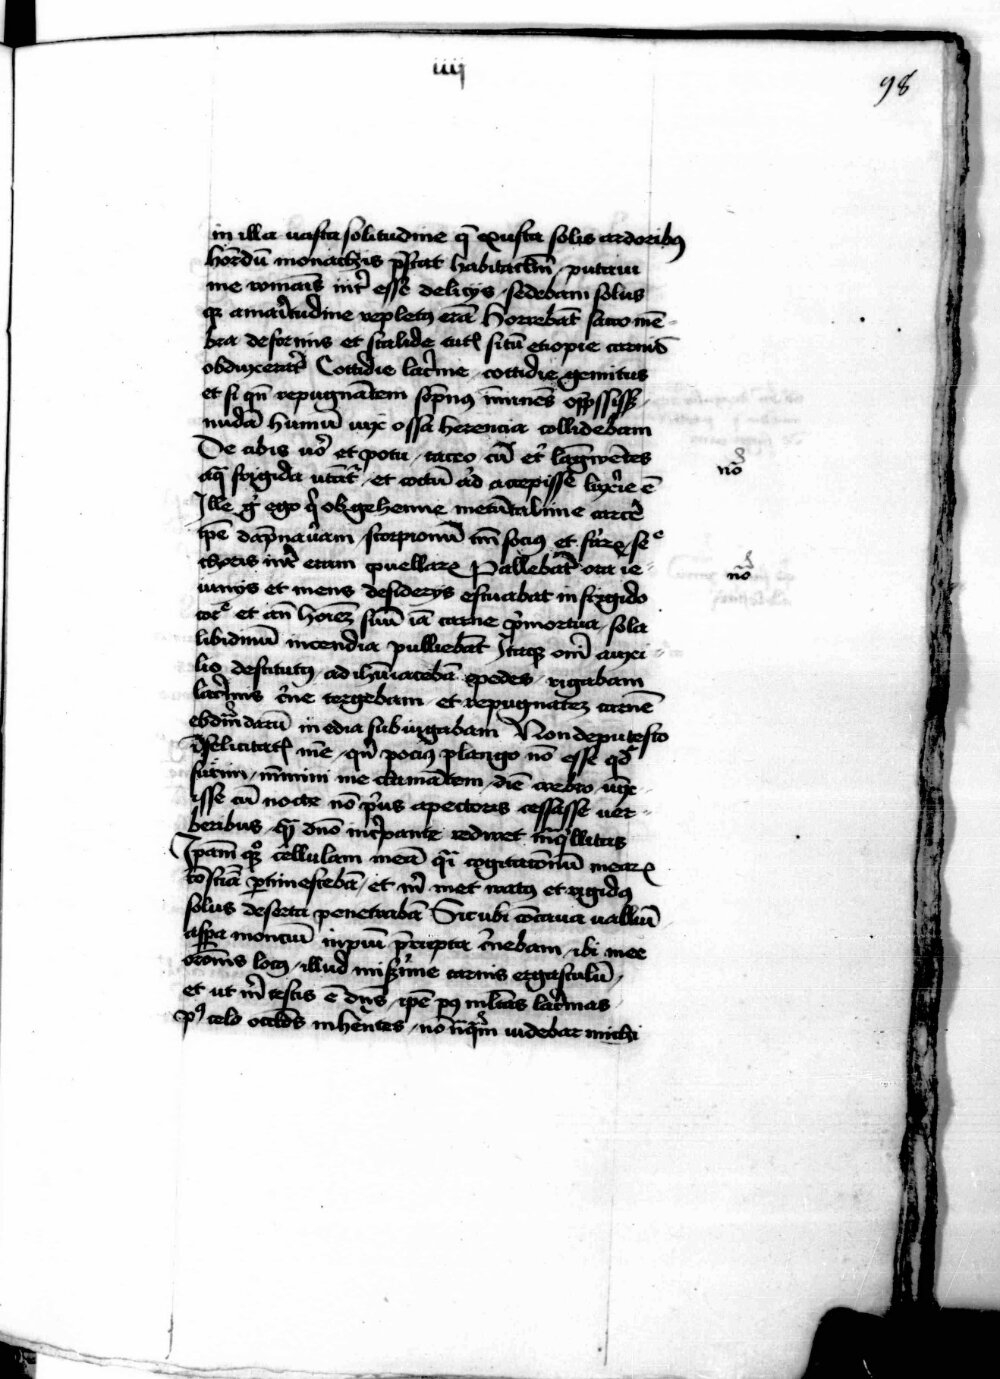 iiij
98
in illa uasta solitudine q̄ exusta solis ardoribus
horridū monachis p̄stat habitaclm̄ / putaui
me romanis int̄ esse delicijs / sedebam solus
qz amaritudine repletus erā Horrebāt sacco mē-
bra deformis et scalida cutis sitū etiopie carnis
obduxerat Cottidie lacrime / cottidie gemitus
et si qn̄ repugnātem sōpnus īminēs opp̄ssiss;
nudā humū uix ossa herencia collidebam
De cibis uo et potu / taceo cū et langwētes
aq̄ frigida utāt̄ / et coctū aᵈ accepisse luxᵘrie ē
nō
Ille gͦ ego q̄ ob gehenne metū tali me carcē
ip̄e dāpnaueram / scorpionū tm̄ socius et feraꝝ se
choris int̄ eram puellaꝝ Pallebāt ora ie-
nō
iunijs et mens desiderijs estuabat in frigido
cor̄ et an̄ hoīez suū iā carne p̄mortua / sola
libidinū incendia pulliebāt Itaqz om̄i auxi-
lio destitutus / ad ihū iacebā pedes / rigabam
lacrimis c̄ne tergebam / et repugnātez carnē
ebdm̄darū inedia subiugabam Non deputesco
īfelicitatis mee / qn̄ pocius plango nō esse qd̄
fuerim / mīmini me clamātem / diē crebro uix-
isse cū nocte nō p̄us a pectoris cessasse uer-
beribus / qz dn̄o inc̄pante rediret t̄nq̄llitas
Ipam qqz cellulam meā q̄i cogitationū mearꝝ
cōsciā ptimescebā / et m̄ met iratus et rigidus
solus deserta penetrabā Sicubi cōcaua uallium
aspa moncium rupiū p̄rupta c̄nebam / ibi mee
orōnis locus / illud miserrime carnis ergastulū /
et ut m̄ testis ē dn̄s / ipē pꝰ mltas lacrimas
pꝰ celo oculos inherētes / nō nūq̄m uidebar michi